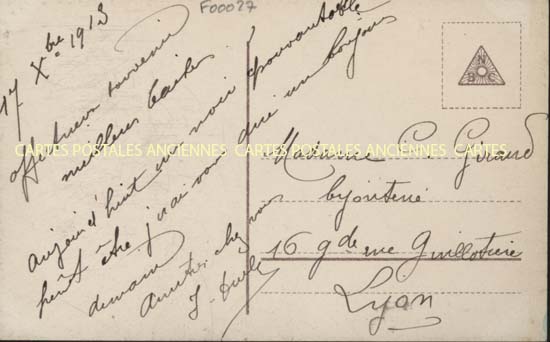 F00027
17 Xbre 1913
affectueux souvenir
meilleurs baisers
aujourd'huit un noir épouvantable
peut être j'irai vous dire un bonjour
demain
chez vous
NBC
CARTES POSTALES ANCIENNES CARTES POSTALES ANCIENNES CARTES
Madame C. Giraud
bijouterie
16 gde rue Guillotière
Lyon